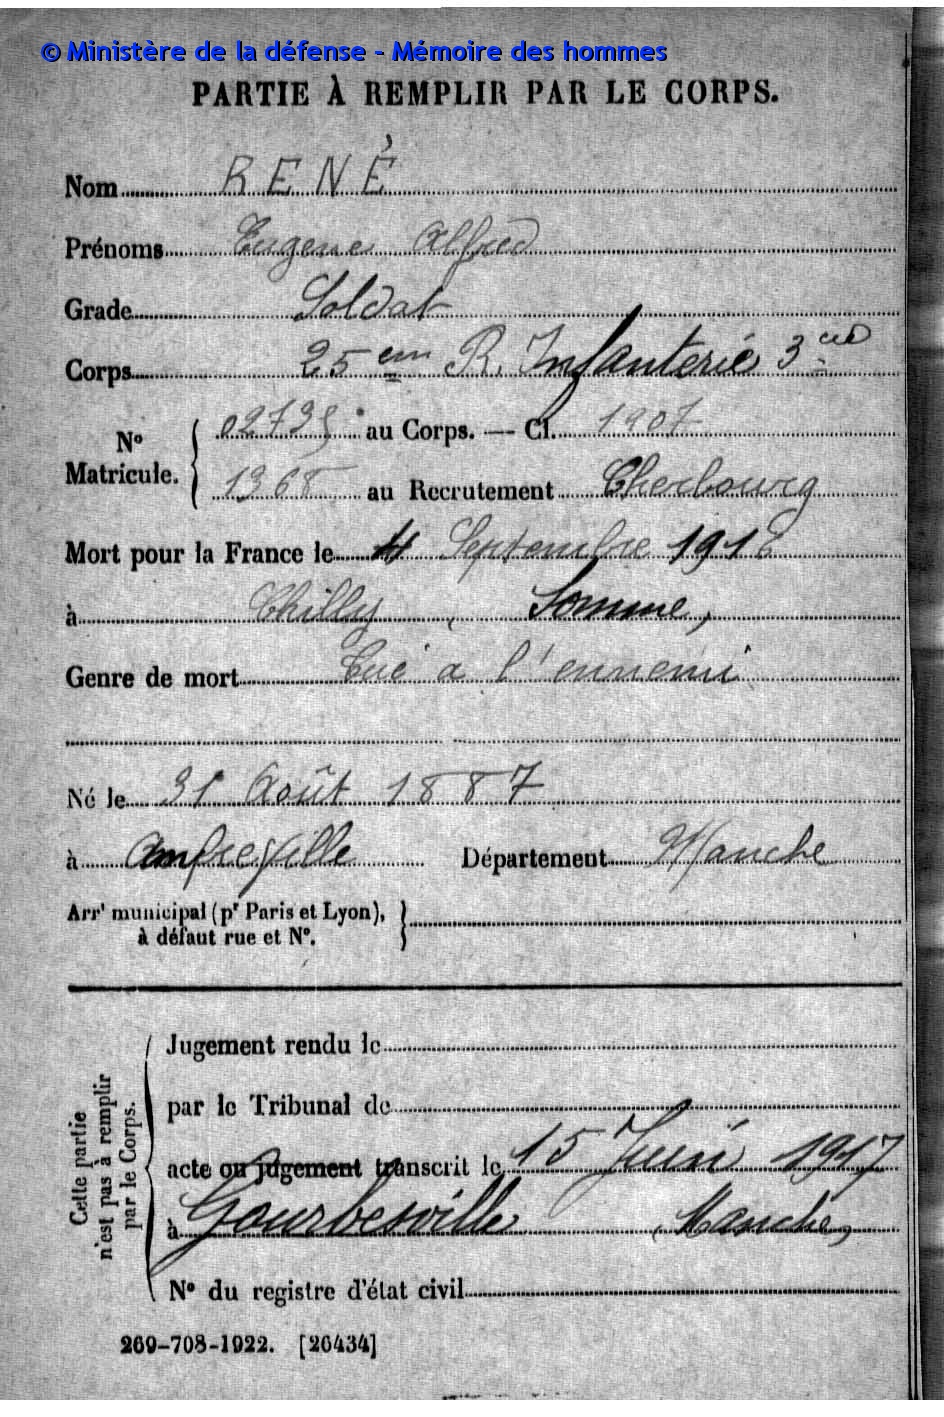 © Ministère de la défense - Mémoire des hommes
PARTIE À REMPLIR PAR LE CORPS.
Nom RENÉ
Prénoms Eugene Alfred
Grade Soldat
Corps 25em R. Infanterie 3cie
N° Matricule. 02735 au Corps. — Cl. 1907
1368 au Recrutement Cherbourg
Mort pour la France le 4 Septembre 1916
à Chilly, Somme,
Genre de mort Tué a l'ennemi
Né le 31 Août 1887
à Amfreville Département Manche
Arrt municipal (pr Paris et Lyon),
à défaut rue et N°.
Cette partie n'est pas à remplir par le Corps.
Jugement rendu le
par le Tribunal de
acte ou jugement transcrit le 15 Juin 1917
à Gourbesville (Manche)
N° du registre d'état civil
269-708-1922. [26434]